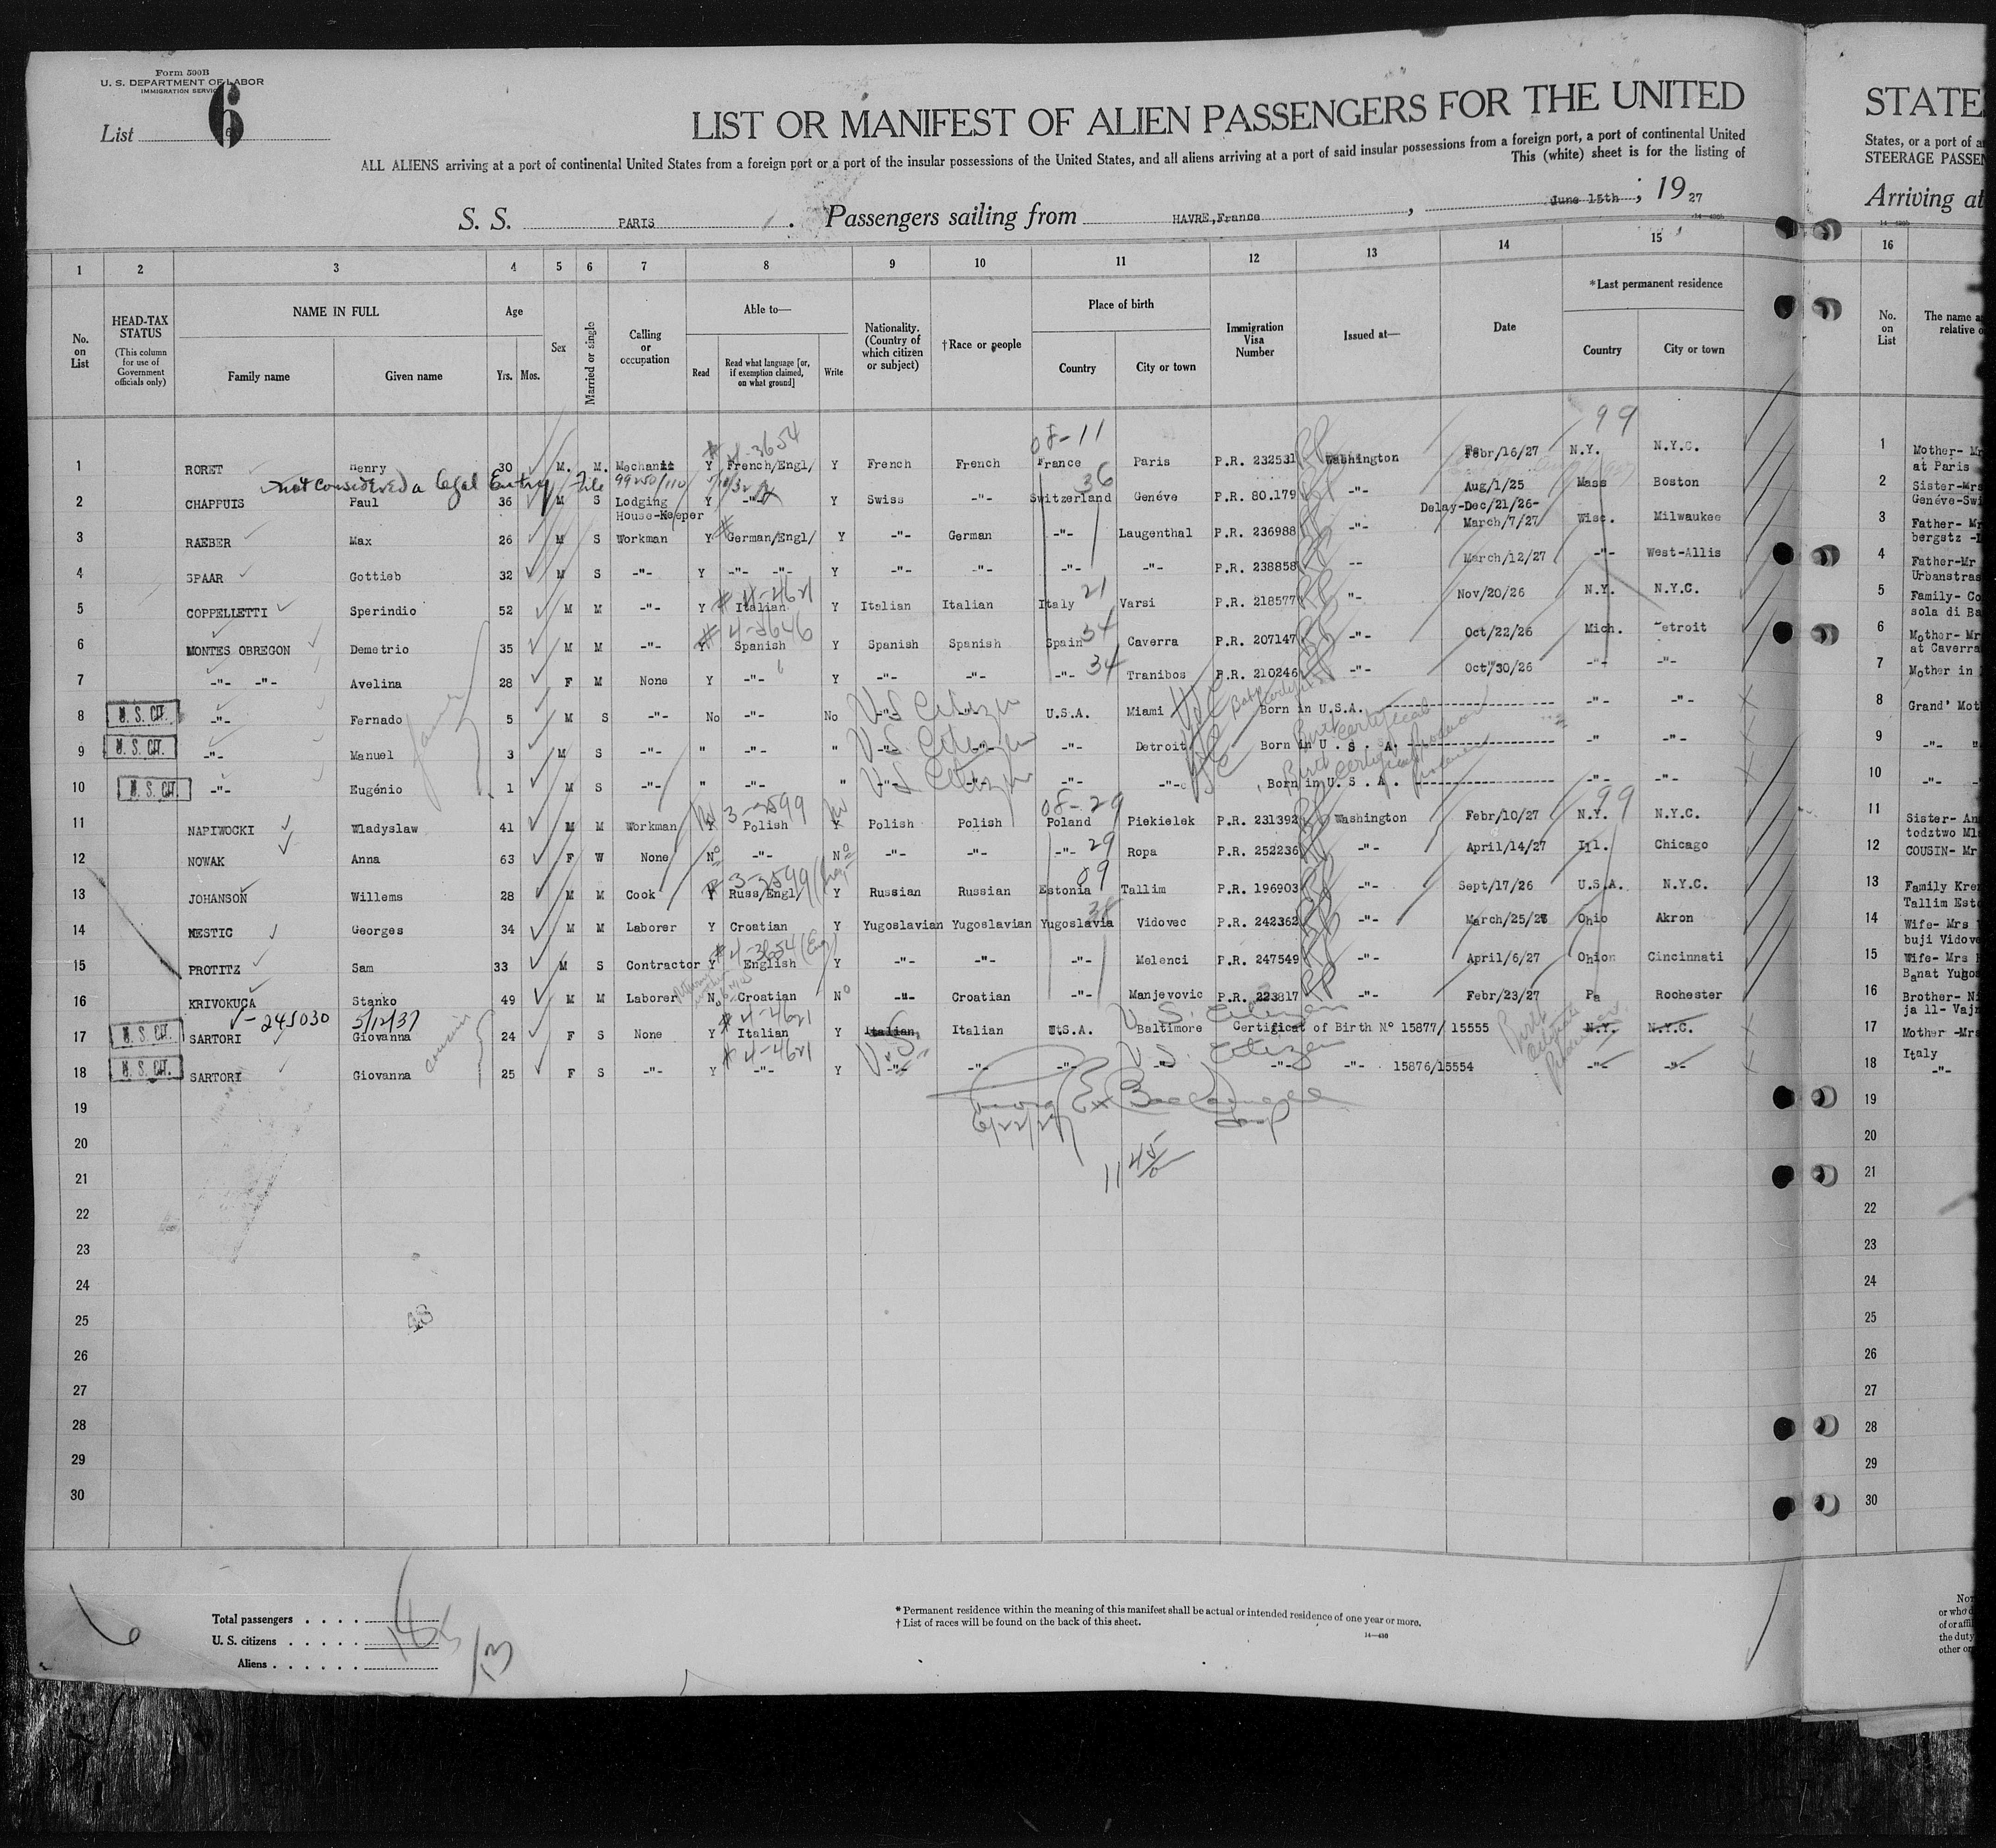 Form 500B
U. S. DEPARTMENT OF LABOR
IMMIGRATION SERVICE
List 6
LIST OR MANIFEST OF ALIEN PASSENGERS FOR THE UNITED
STATE
ALL ALIENS arriving at a port of continental United States from a foreign port or a port of the insular possessions of the United States, and all aliens arriving at a port of said insular possessions from a foreign port, a port of continental United
States, or a port of
This (white) sheet is for the listing of
STEERAGE PASSEN
S. S. PARIS. Passengers sailing from HAVRE,France, June 15th; 1927
Arriving at
1 2 3 4 5 6 7 8 9 10 11 12 13 14 15 16
No. on List
HEAD-TAX STATUS (This column for use of Government officials only)
NAME IN FULL
Family name Given name
Age Yrs. Mos.
Sex
Married or single
Calling or occupation
Able to—
Read Read what language [or, if exemption claimed, on what ground] Write
Nationality. (Country of which citizen or subject)
†Race or people
Place of birth
Country City or town
Immigration Visa Number
Issued at—
Date
*Last permanent residence
Country City or town
No. on List
The name
relative
08-11 99
# 4-3654
1 RORET Henry 30 M. M. Mechanic Y French/Engl/ Y French French France Paris P.R. 232531 Washington Febr/16/27 N.Y. N.Y.C. 1 Mother- Mr
at Paris
not considered a legal Entry File 99250/110 36
2 CHAPPUIS Paul 36 M S Lodging House-Keeper Y -"- Y Swiss -"- Switzerland Genéve P.R. 80.179 -"- Aug/1/25 Mass Boston 2 Sister-Mrs
Delay-Dec/21/26- Genéve-Swi
3 RAEBER Max 26 M S Workman Y German/Engl/ Y -"- German -"- Laugenthal P.R. 236988 -"- March/7/27 Wisc. Milwaukee 3 Father- Mr
bergstz
4 SPAAR Gottieb 32 M S -"- Y -"- -"- Y -"- -"- -"- -"- P.R. 238858 -- March/12/27 -"- West-Allis 4 Father-Mr
Urbanstras
# 4-4621 21
5 COPPELLETTI Sperindio 52 M M -"- Y Italian Y Italian Italian Italy Varsi P.R. 218577 "- Nov/20/26 N.Y. N.Y.C. 5 Family- Co
sola di Ba
34
6 MONTES OBREGON Demetrio 35 M M -"- Y Spanish Y Spanish Spanish Spain Caverra P.R. 207147 -"- Oct/22/26 Mich. Detroit 6 Mother- Mr
at Caverra
7 -"- -"- Avelina 28 F M None Y -"- Y -"- -"- -"- 34 Tranibos P.R. 210246 -"- Oct/30/26 -"- -"- 7 Mother in
8 U. S. CIT. -"- Fernado 5 M S -"- No -"- No -"- U S Citizen -"- U.S.A. Miami Born in U.S.A. -"- -"- 8 Grand' Mot
9 U. S. CIT. -"- Manuel 3 M S -"- " -"- " -"- U.S. Citizen -"- -"- Detroit Born in U.S.A. -" -"- 9 -"-
10 U. S. CIT. -"- Eugénio 1 M S -"- " -"- " -"- U S Citizen -"- -"- -"- Born in U.S.A. -"- -"- 10 -"-
3-2599 08-29 99
11 NAPIWOCKI Wladyslaw 41 M M Workman Y Polish Y Polish Polish Poland Piekielek P.R. 231392 Washington Febr/10/27 N.Y. N.Y.C. 11 Sister- An
12 NOWAK Anna 63 F W None No -"- No -"- -"- -"- 29 Ropa P.R. 252236 -"- April/14/27 Ill. Chicago 12 COUSIN- Mr
3-2599 09
13 JOHANSON Willems 28 M M Cook Y Russ/Engl/ Y Russian Russian Estonia Tallim P.R. 196903 -"- Sept/17/26 U.S.A. N.Y.C. 13 Family Kre
Tallim Est
38
14 MESTIC Georges 34 M M Laborer Y Croatian Y Yugoslavian Yugoslavian Yugoslavia Vidovec P.R. 242362 -"- March/25/27 Ohio Akron 14 Wife- Mrs
buji Vidov
# 4-3654 (Eng)
15 PROTITZ Sam 33 M S Contractor Y English Y -"- -"- -"- Melenci P.R. 247549 -"- April/6/27 Ohion Cincinnati 15 Wife- Mrs
Banat Yugos
16 KRIVOKUCA Stanko 49 M M Laborer No Croatian No -"- Croatian -"- Manjevovic P.R. 223817 -"- Febr/23/27 Pa Rochester 16 Brother- Ni
ja ll- Vajn
V-245030 5/12/37 # 4-4621 U.S. Citizen
17 U. S. CIT. SARTORI Giovanna 24 F S None Y Italian Y Italian Italian U.S.A. Baltimore Certificat of Birth No 15877/ 15555 N.Y. N.Y.C. 17 Mother -Mrs
cousin # 4-4621 U.S. U.S. Citizen Italy
18 U. S. CIT. SARTORI Giovanna 25 F S -"- Y -"- Y -"- -"- -"- -"- -"- -"- 15876/15554 -"- -"- 18 -"-
19 19
6/22/27
20 20
21 21
22 22
23 23
24 24
25 25
26 26
27 27
28 28
29 29
30 30
Total passengers
U. S. citizens
Aliens
13
* Permanent residence within the meaning of this manifest shall be actual or intended residence of one year or more.
† List of races will be found on the back of this sheet.
14—430